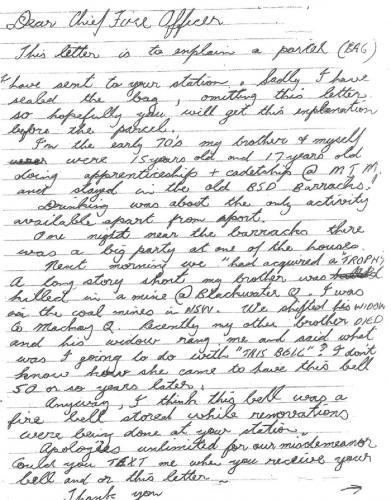 Dear Chief Fire Officer
This letter is to explain a parcel (BAG)
I have sent to your station. Sadly I have
sealed the bag, ometing this letter
so hopefully you will get this explenation
before the parcel.
I'm the early 70's my brother & myself
were 15 years old and 17 years old
doing apprenticeship + cadetship @ M.I.M.
and stayed in the old BSD Barrachs.
Drinking was about the only activity
available apart from sport.
One night near the barrachs there
was a big party at one of the houses.
Next morning we "had acquired a "TROPHY"
A long story short my brother was
killed in a mine @ Blackwater Q. I was
in the coal mines in NSW. We shifted his WIDOW
to Mackay Q. Recently my other brother DIED
and his widow rang me and said what
was I going to do with "THIS BELL"? I don't
know how she came to have this bell
50 or so years later.
Anyway, I think this bell was a
fire bell stored while renorations
were being done at your station.
Apologies unlimited for our misdemeanor
Could you TEXT me when you receive your
bell and or this letter.
Thank you